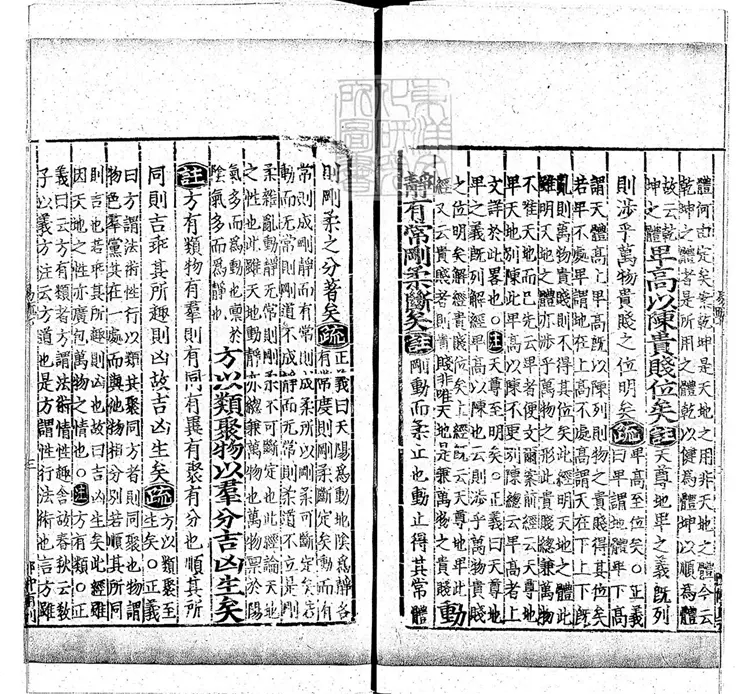 體何由定矣案乾坤是天地之用非天地之體今云
乾坤之體者是所用之體乾以健為體坤以順為體
故云乾
坤之體
卑高以陳貴賤位矣註天尊地卑之義旣列
則涉乎萬物貴賤之位明矣疏卑高至位矣○正義
曰卑謂地體卑下高
謂天體高上卑高旣以陳列則物之貴賤得其位矣
若卑不處卑謂地在上高不處高謂天在下上下旣
亂則萬物貴賤則不得其位矣此經明天地之體此
雖明天地之體亦涉乎萬物之形此貴賤總兼萬物
不惟天地而已先云卑者便文爾案前經云天尊地
卑天地別陳此卑高以陳不更別陳總云卑高者上
文詳於此畧也○註天尊至明矣○正義曰天尊地
卑之義旣列解經卑高以陳也云則涉乎萬物貴賤
之位明矣解經貴賤位矣上經旣云天尊地卑此
經又云貴賤者則貴賤非唯天地是兼萬物之貴賤
動
靜有常剛柔斷矣註剛動而柔止也動止得其常體
則剛柔之分著矣疏正義曰天陽為動地陰為靜各
有常度則剛柔斷定矣動而有
常則成剛靜而有常則成柔所以剛柔可斷定矣若
動而無常則剛道不成靜而無常則柔道不立是剛
柔雜亂動靜無常則剛柔不可斷定也此經論天地
之性也此雖天地動靜亦總兼萬物也萬物稟於陽
氣多而為動也稟於
陰氣多而為靜也
方以類聚物以羣分吉凶生矣
註方有類物有羣則有同有異有聚有分也順其所
同則吉乖其所趣則凶故吉凶生矣疏方以類聚至
生矣○正義
曰方謂法術性行以類共聚同方者則同聚也物謂
物色羣黨共在一處而與他物相分別若順其所同
則吉也若乖其所趣則凶也故曰吉凶生矣此經雖
因天地之性亦廣包萬物之情也○註方有類○正
義曰云方有類者方謂法術情性趣舍故春秋云敎
子以義方註云方道也是方謂性行法術也言方雖